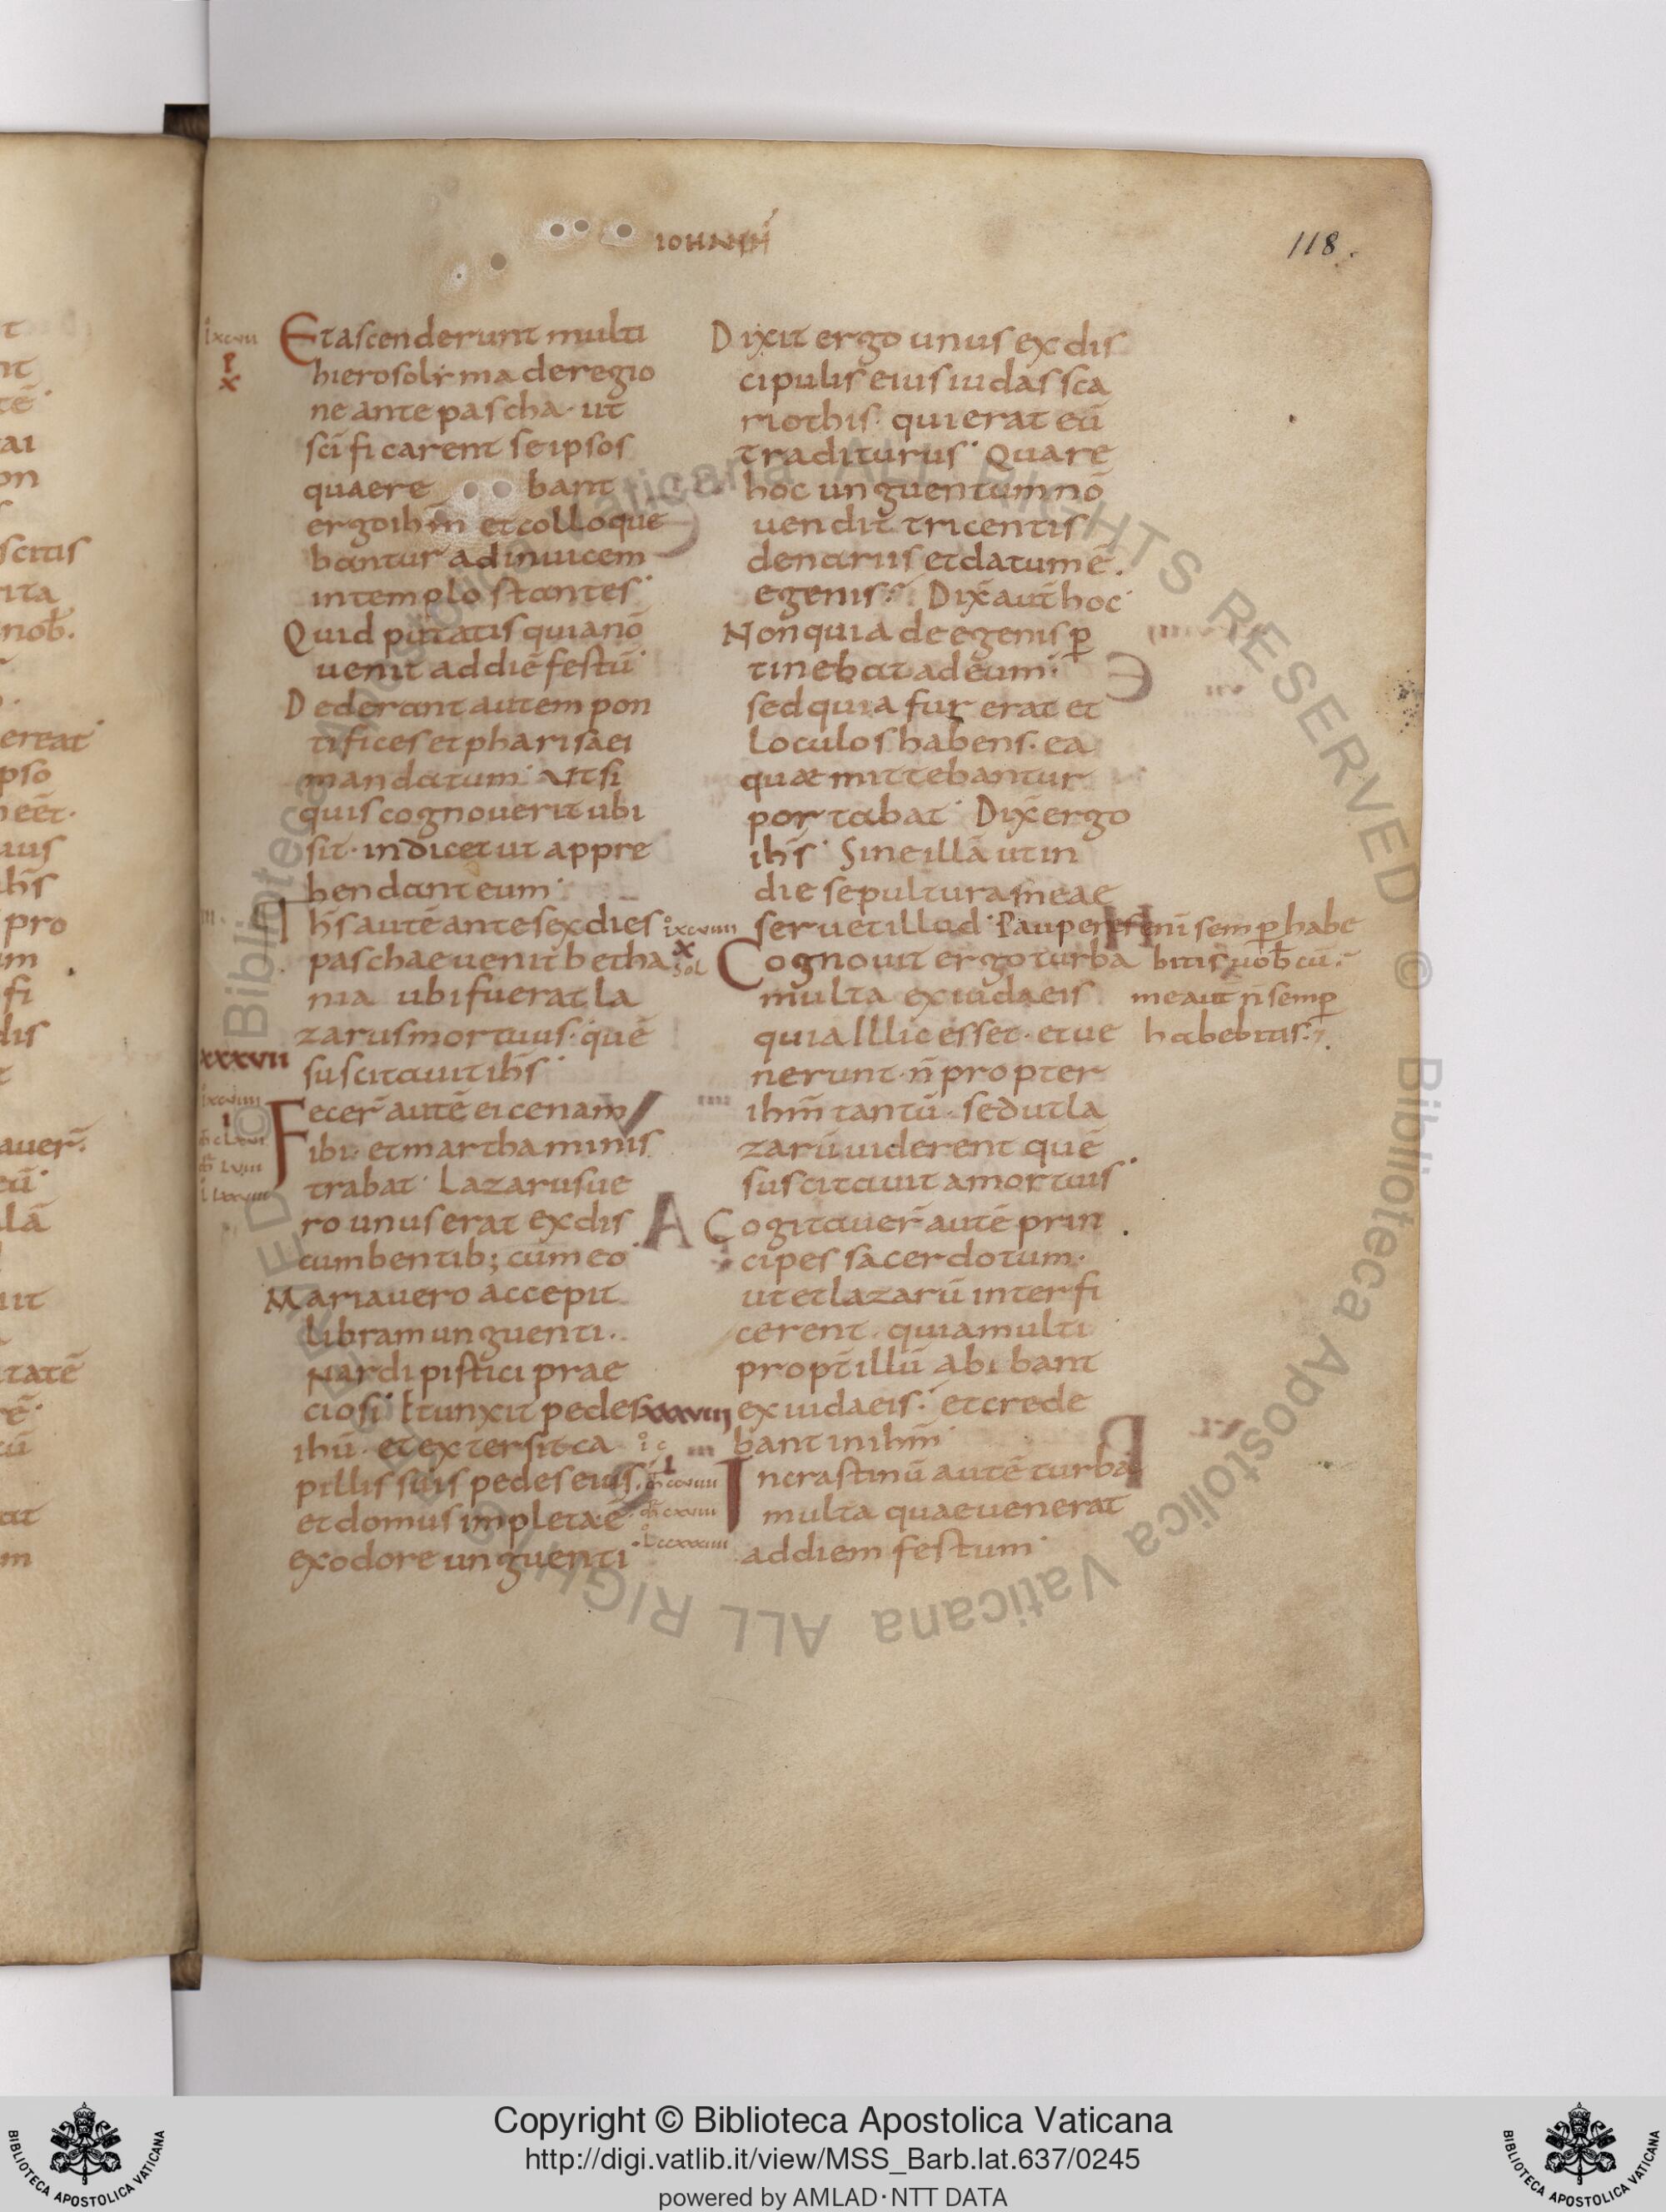 IOHANN
118.
Et ascenderunt multi
hierosolima de regio
ne ante pascha · ut
scificarent se ipsos
quaere bant
ergo ihm et colloque
bantur ad inuicem
in templo stantes
Quid putatis quia nō
uenit ad diē festū
Dederant autem pon
tifices et pharisaei
mandatum ut si
quis cognouerit ubi
sit · indicet ut appre
hendant eum
Ihs autē ante sex dies
paschae uenit betha
nia ubi fuerat la
zarus mortuus · quē
xxxvii
suscitauit ihs
Fecer̄ autē ei cenam
ibi · et martha minis
trabat · Lazarus ue
ro unus erat ex dis
cumbentib; cum eo
Maria uero accepit
libram unguenti ·
Nardi pistici prae
ciosi Et unxit pedes
ihū · et extersit ca
pillis suis pedes eius
et domus impleta ē
ex odore unguenti
Dixit ergo unus ex dis
cipulis eius iudas sca
riothis · qui erat eū
traditurus · Quare
hoc unguentum nō
uendit tricentis
denariis et datum ē
egenis · Dix̄ aūt hoc
Non quia de egenis p
tinebat ad eum
sed quia fur erat et
loculos habens · ea
quae mittebantur
portabat · Dix̄ ergo
ihs · Sine illā ut in
die sepultura meae
seruet illud · Pauperes eni semp habe
bitis uob cū
me aut n̄ semp
habebitis
x
Sol
Cognouit ergo turba
multa ex iudaeis
quia illic esset · et ue
nerunt · n̄ propter
ihm̄ tantū · sed ut la
zarū uiderent quē
suscitauit a mortuis
A
Cogitauer̄ autē prin
cipes sacerdotum ·
ut et lazarū interfi
cerent · quia multi
propt̄ illū abibant
xxxviii
ex iudaeis · et crede
bant in ihm̄
In crastinū autē turba
multa quae uenerat
ad diem festum
Copyright © Biblioteca Apostolica Vaticana
http://digi.vatlib.it/view/MSS_Barb.lat.637/0245
powered by AMLAD·NTT DATA
BIBLIOTECA APOSTOLICA VATICANA
BIBLIOTECA APOSTOLICA VATICANA